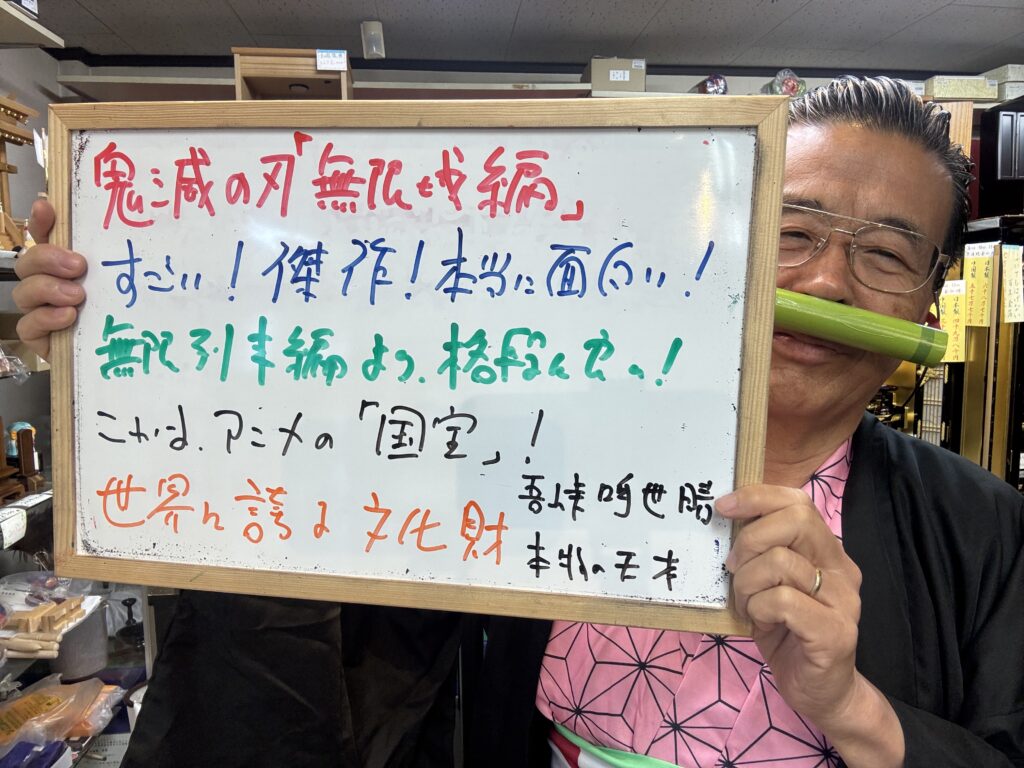 鬼滅の刃「無限城編」
すごい！傑作！本当に面白い！
無限列車編より、格段に良い！
これは、アニメの「国宝」！
世界に誇る文化財
吾峠呼世晴
本物の天才